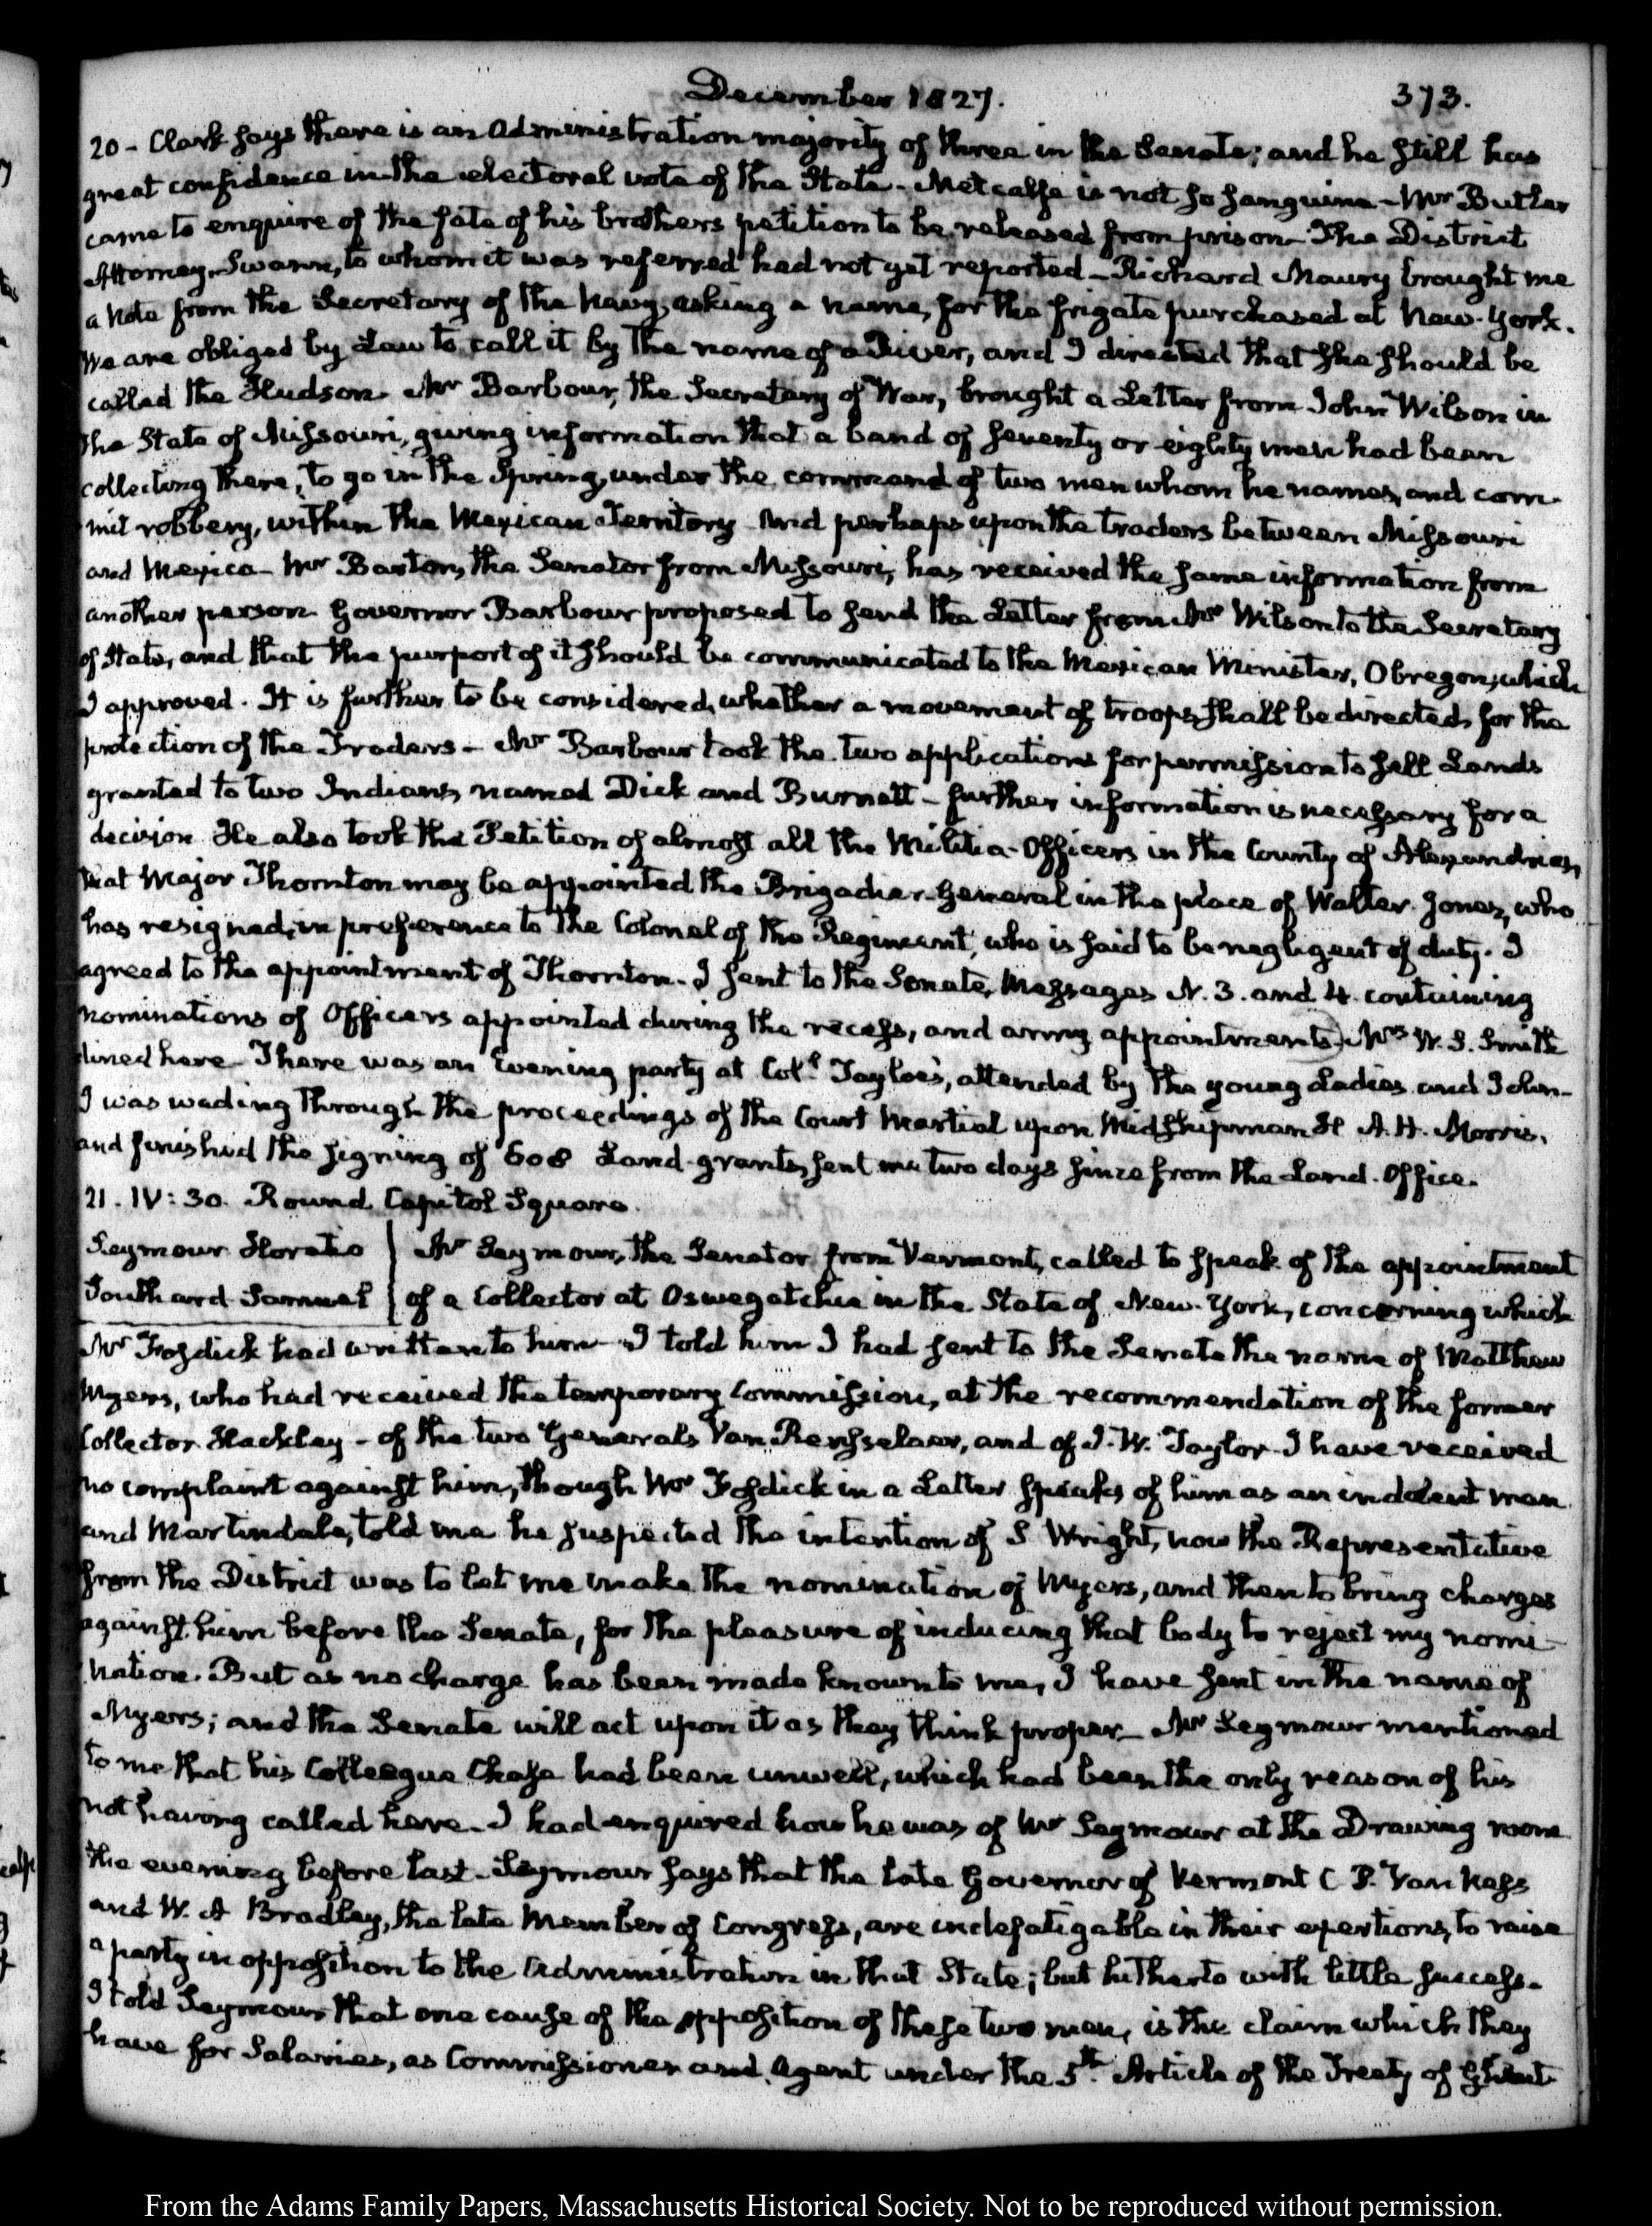 December 1827.
373.
20 - Clark says there is an Administration majority of three in the Senate; and he still has
great confidence in the electoral vote of the State - Metcalfe is not so sanguine - Mr Butler
came to enquire of the fate of his brothers petition to be released from prison - The District
Attorney, Swann, to whom it was referred had not yet reported - Richard Maury brought me
a Note from the Secretary of the Navy, asking a name, for the frigate purchased at New-York.
We are obliged by Law to call it by the name of a River, and I directed that she should be
called the Hudson - Mr Barbour, the Secretary of War, brought a Letter from John Wilson in
the State of Missouri, giving information that a band of seventy or eighty men had been
collecting there, to go in the Spring, under the command of two men whom he names, and com-
mit robbery, within the Mexican Territory - And perhaps upon the traders between Missouri
and Mexico - Mr Barton, the Senator from Missouri, has received the same information from
another person - Governor Barbour proposed to send the Letter from Mr Wilson to the Secretary
of State, and that the purport of it should be communicated to the Mexican Minister, Obregon, which
I approved. It is further to be considered, whether a movement of troops shall be directed, for the
protection of the Traders - Mr Barbour took the two applications for permission to sell Lands
granted to two Indians, named Dick and Burnett - further information is necessary for a
decision - He also took the Petition of almost all the Militia-Officers in the County of Alexandria,
that Major Thornton may be appointed the Brigadier-General in the place of Walter Jones, who
has resigned, in preference to the Colonel of the Regiment, who is said to be negligent of duty. I
agreed to the appointment of Thornton - I sent to the Senate, Messages N. 3. and 4. containing
nominations of Officers appointed during the recess, and army appointments - Mrs W. S. Smith
dined here - There was an Evening party at Coll. Tayloe's, attended by the young Ladies and John -
I was wading through the proceedings of the Court Martial upon Midshipman H. A. H. Morris.
and finished the signing of 608 Land-grants, sent me two days since from the Land-Office.
21. IV: 30. Round Capitol Square.
Seymour Horatio
Southard Samuel
Mr Seymour, the Senator from Vermont, called to speak of the appointment
of a Collector at Oswegatchie in the State of New-York, concerning which
Mr Fosdick had written to him - I told him I had sent to the Senate the name of Matthew
Myers, who had received the temporary Commission, at the recommendation of the former
Collector Hackley - of the two Generals Van Rensselaer, and of J. W. Taylor. I have received
no complaint against him, though Mr Fosdick in a Letter speaks of him as an indolent man
and Martindale, told me he suspected the intention of S. Wright, now the Representative
from the District was to let me make the nomination of Myers, and then to bring charges
against him before the Senate, for the pleasure of inducing that body to reject my nomi-
nation. But as no charge has been made known to me, I have sent in the name of
Myers; and the Senate will act upon it as they think proper - Mr Seymour mentioned
to me that his Colleague Chase had been unwell, which had been the only reason of his
not having called here - I had enquired how he was of Mr Seymour at the Drawing room
the evening before last - Seymour says that the late Governor of Vermont C. P. Van Ness
and W. A Bradley, the late Member of Congress, are indefatigable in their exertions, to raise
a party in opposition to the Administration in that State; but hitherto with little success -
I told Seymour that one cause of the opposition of these two men, is the claim which they
have for Salaries, as Commissioner and Agent under the 5th. Article of the Treaty of Ghent
From the Adams Family Papers, Massachusetts Historical Society. Not to be reproduced without permission.